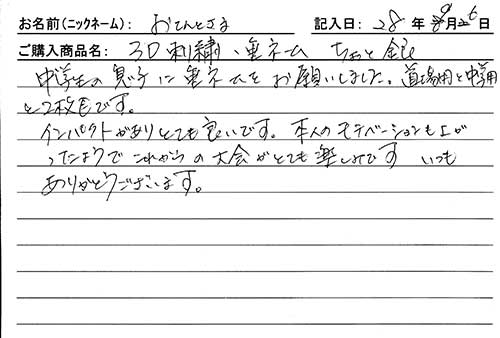 お名前(ニックネーム): おてんとさま 記入日: 28年9月26日
ご購入商品名: 3D刺繍、垂ネーム ちょっと金銀
中学生の息子に垂ネームをお願いしました。道場用と中学用
と2枚目です。
インパクトがありとても良いです。本人のモチベーションも上が
ったようでこれからの大会がとても楽しみです いつも
ありがとうございます。